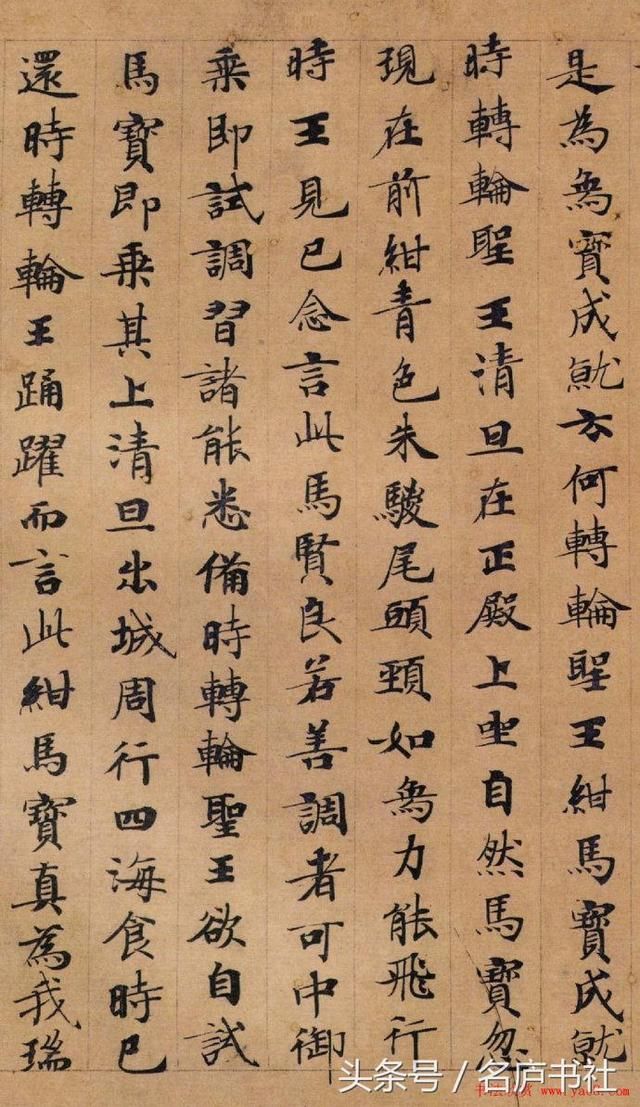 是為象寶成就云何轉輪聖王紺馬寶成就
時轉輪聖王清旦在正殿上坐自然馬寶忽
現在前紺青色朱騣尾頭頸如象力能飛行
時王見已念言此馬賢良若善調者可中御
乘即試調習諸能悉備時轉輪聖王欲自試
馬寶即乘其上清旦出城周行四海食時已
還時轉輪王踊躍而言此紺馬寶真為我瑞
头条号/名庐书社
www.yac8.com